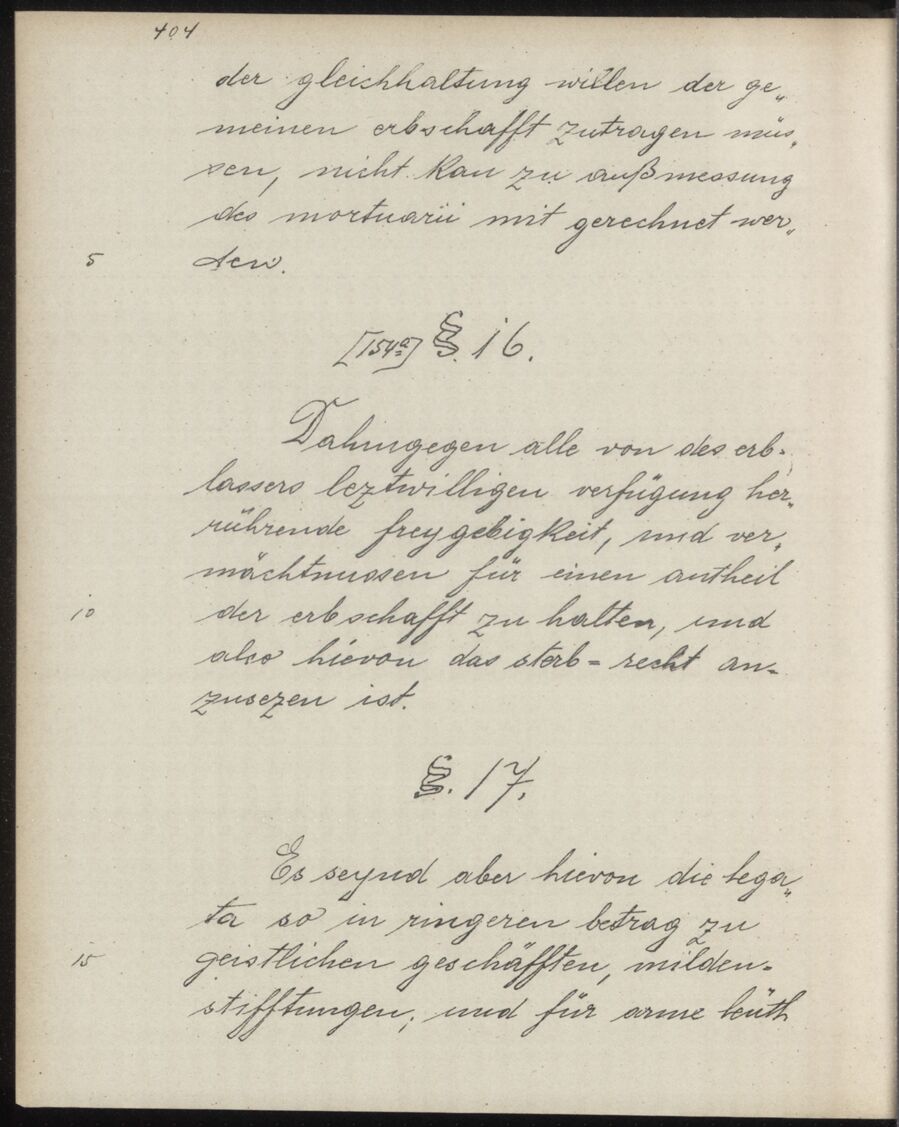 404
der gleichhaltung willen der ge„
meinen erbschafft zutragen müs„
sen, nicht kan zu außmessung
des mortuarii mit gerechnet wer„
5 den.
[154ª] §. 16.
Dahingegen alle von des erb-
lassers leztwilligen verfügung her„
rührende freygebigkeit, und ver„
mächtnussen für einen antheil
10 der erbschafft zu halten, und
also hievon das sterb=recht an=
zusezen ist.
§. 17.
Es seynd aber hievon die lega„
ta so in ringeren betrag zu
15 geistlichen geschäfften, milden=
stifftungen, und für arme leüth